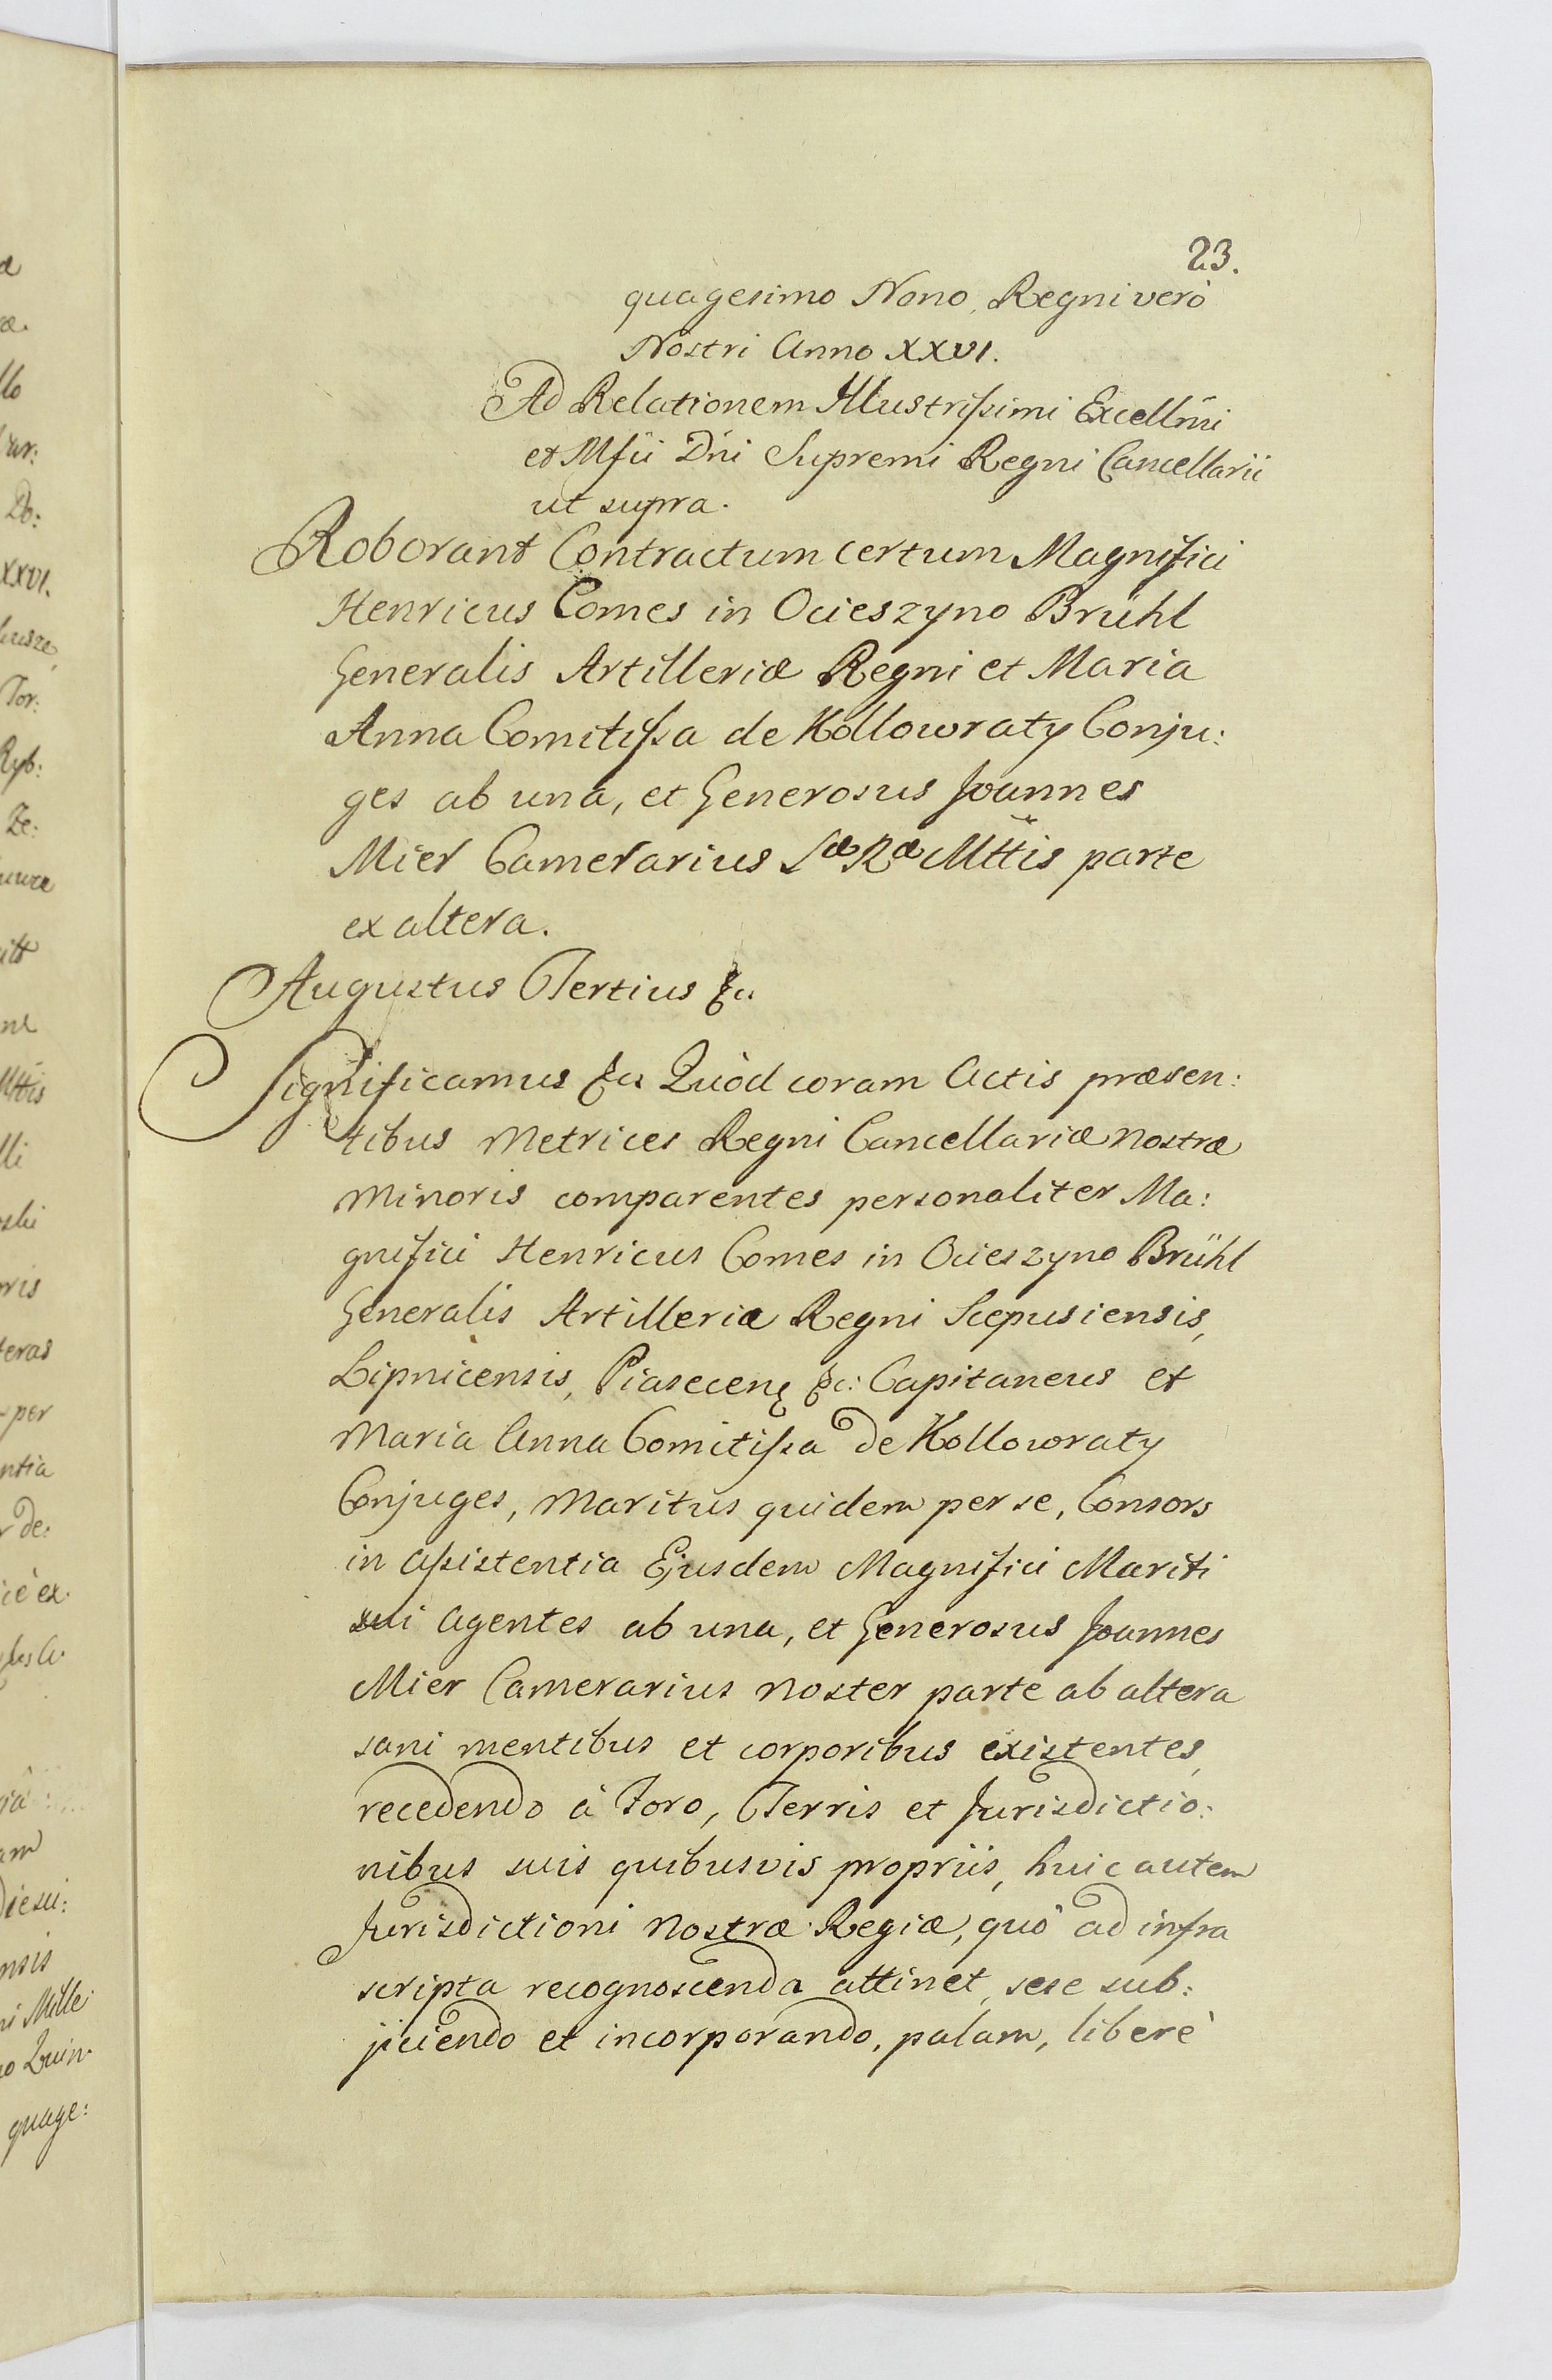 23.
quagesimo Nono, Regni verò
Nostri Anno XXVI.
Ad Relationem Illustrissimi Excellmi
et Mfii Dni Supremi Regni Cancellarii
ut supra.
Roborant Contractum certum Magnifici
Henricus Comes in Ocieszyno Brühl
Generalis Artilleriæ Regni et Maria
Anna Comitissa de Kollowraty Conju:
ges ab una, et Generosus Joannes
Mier Camerarius Sæ Ræ Mttis parte
ex altera.
Augustus Tertius &c
Significamus &c Quòd coram Actis præsen:
tibus Metrices Regni Cancellariæ nostræ
Minoris comparentes personaliter Ma:
gnifici Henricus Comes in Ocieszyno Brühl
Generalis Artilleriæ Regni Scepusiensis,
Lipnicensis, Piasecenę &c: Capitaneus et
Maria Anna Comitissa de Kollowraty
Conjuges, Maritus quidem per se, Consors
in assistentia Ejusdem Magnifici Mariti
sui agentes ab una, et Generosus Joannes
Mier Camerarius noster parte ab altera
sani mentibus et corporibus existentes,
recedendo à Foro, Terris et Jurisdictio:
nibus suis quibusvis propriis, huic autem
Jurisdictioni nostræ Regiæ, quò ad infra
scripta recognoscenda attinet, sese sub:
jiciendo et incorporando, palam, liberè